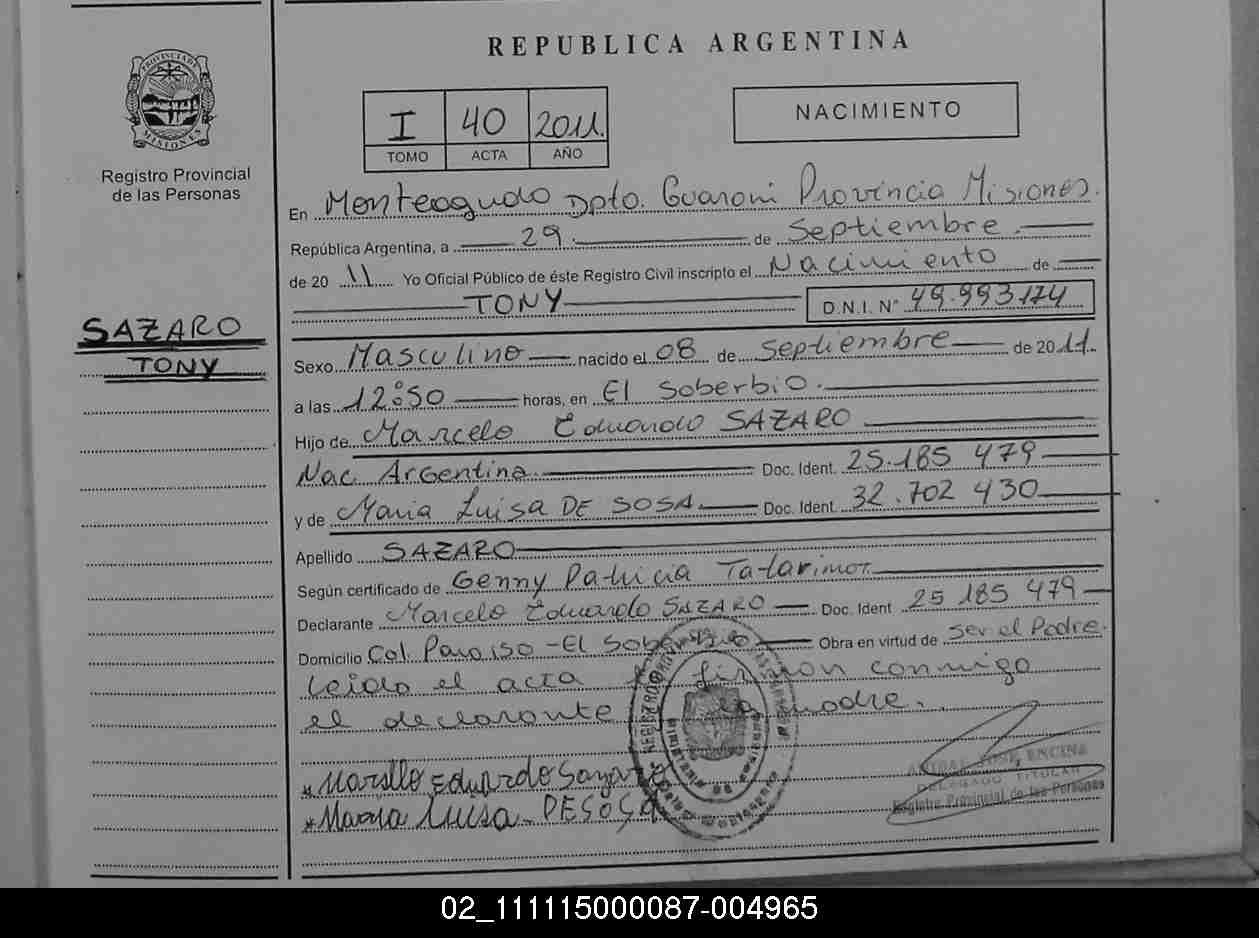 REPUBLICA ARGENTINA
PROVINCIA DE MISIONES
Registro Provincial
de las Personas
I 40 2011.
TOMO ACTA AÑO
NACIMIENTO
En Monteagudo Dpto. Guaroni Provincia Misiones.
República Argentina, a 29. de Septiembre.
de 20 11 Yo Oficial Público de éste Registro Civil inscripto el Nacimiento de
TONY D.N.I. N° 49.993.174
SAZARO
TONY
Sexo Masculino nacido el 08 de Septiembre de 2011.
a las 12:50 horas, en El Soberbio.
Hijo de Marcelo Eduardo SAZARO
Nac. Argentina. Doc. Ident. 25.185 479
y de Maria Luisa DE SOSA. Doc. Ident. 32.702 430
Apellido SAZARO
Según certificado de Genny Patricia
Declarante Marcelo Eduardo SAZARO Doc. Ident 25 185 479
Domicilio Col. Paraiso - El Soberbio Obra en virtud de ser el Padre.
Leido el acta firman conmigo
el declarante la madre.
Marcelo Eduardo Sazaro
Maria Luisa DESOSA
ANIBAL JOSE ENCINA
DELEGADO TITULAR
Registro Provincial de las Personas
02_111115000087-004965